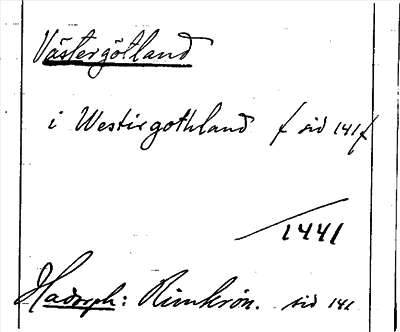 Västergötland
i Westirgothland f sid 141 f
/1441
Hadorph: Rimkrön. sid 141